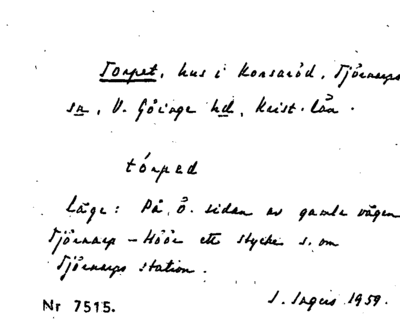 Torpet, hus i Korsaröd, Tjörnarps
sn, V. Göinge hd, Krist. län.
tórpad
Läge: På ö. sidan av gamla vägen
Tjörnarp - Höör ett stycke s. om
Tjörnarps station.
Nr 7515.
I. Ingers 1959.